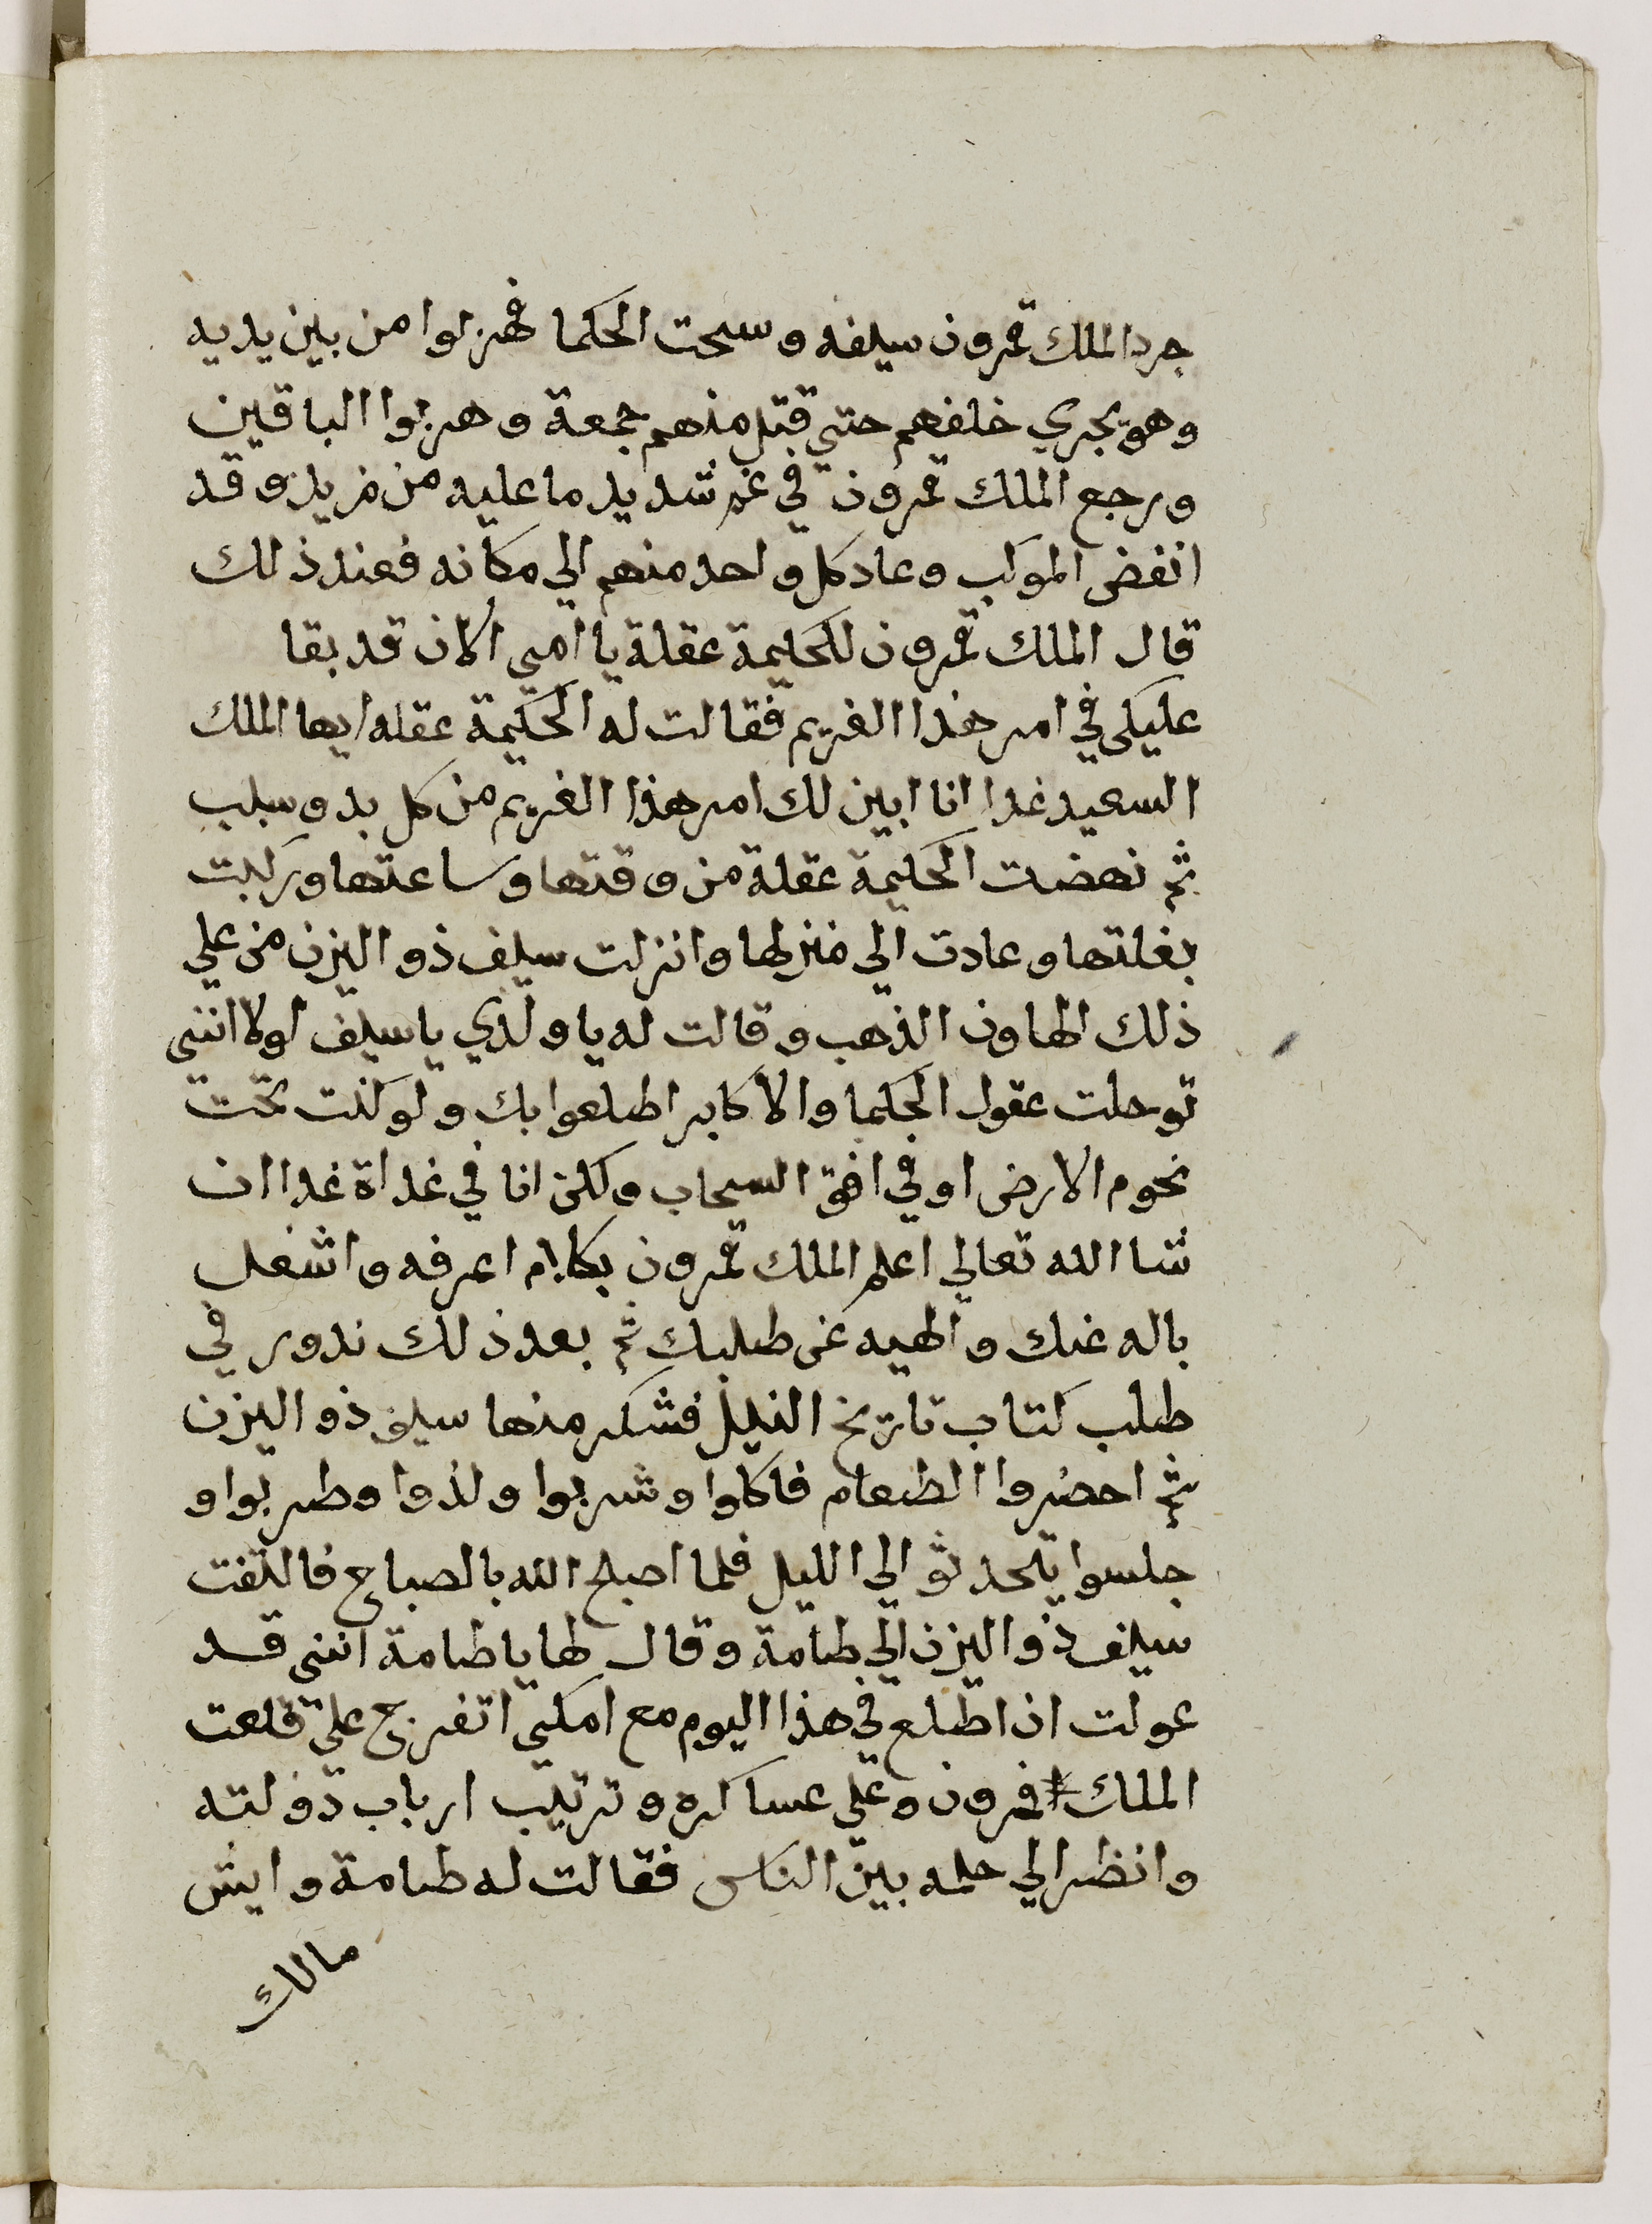 جرد الملك قمرون سيفه وسحت الحكما فهزلوا من بين يديه
وهو يجري خلفهم حتي قتل منهم جمعة وهربوا الباقين
ورجع الملك قمرون في غم شديد ما عليه من مزيد وقد
انفض الموكب وعاد كل واحد منهم الي مكانه فعند ذلك
قال الملك قمرون للحكيمة عقلة يا امي الان قد بقا
عليكي في امر هذا الغريم فقالت له الحكيمة عقله ايها الملك
السعيد غدا انا ابين لك امر هذا الغريم من كل بد وسبب
ثم نهضت الحكيمة عقلة من وقتها وساعتها وركبت
بغلتها وعادت الي منزلها وانزلت سيف ذو اليزن من علي
ذلك الهاون الذهب وقالت له يا ولدي يا سيف لولا انني
توحلت عقول الحكما والاكابر اطلعوا بك ولو كنت تحت
نخوم الارض او في افق السحاب ولكن انا في غداة غدا ان
شا الله تعالي اعلم الملك قمرون بكلام اعرفه واشغل
باله عنك والهيه عن طلبك ثم بعد ذلك ندور في
طلب كتاب تاريخ النيل فشكر منها سيف ذو اليزن
ثم احضروا الطعام فاكلوا وشربوا ولذوا وطربوا و
جلسوا يتحدثو الي الليل فلما اصبح الله بالصباح فالتفت
سيف ذو اليزن الي طامة وقال لها يا طامة انني قد
عولت ان اطلع في هذا اليوم مع امكي اتفرج علي قلعت
الملك قمرون وعلي عساكره وترتيب ارباب دولته
وانظر الي حلمه بين الناس فقالت له طامة وايش
مالك